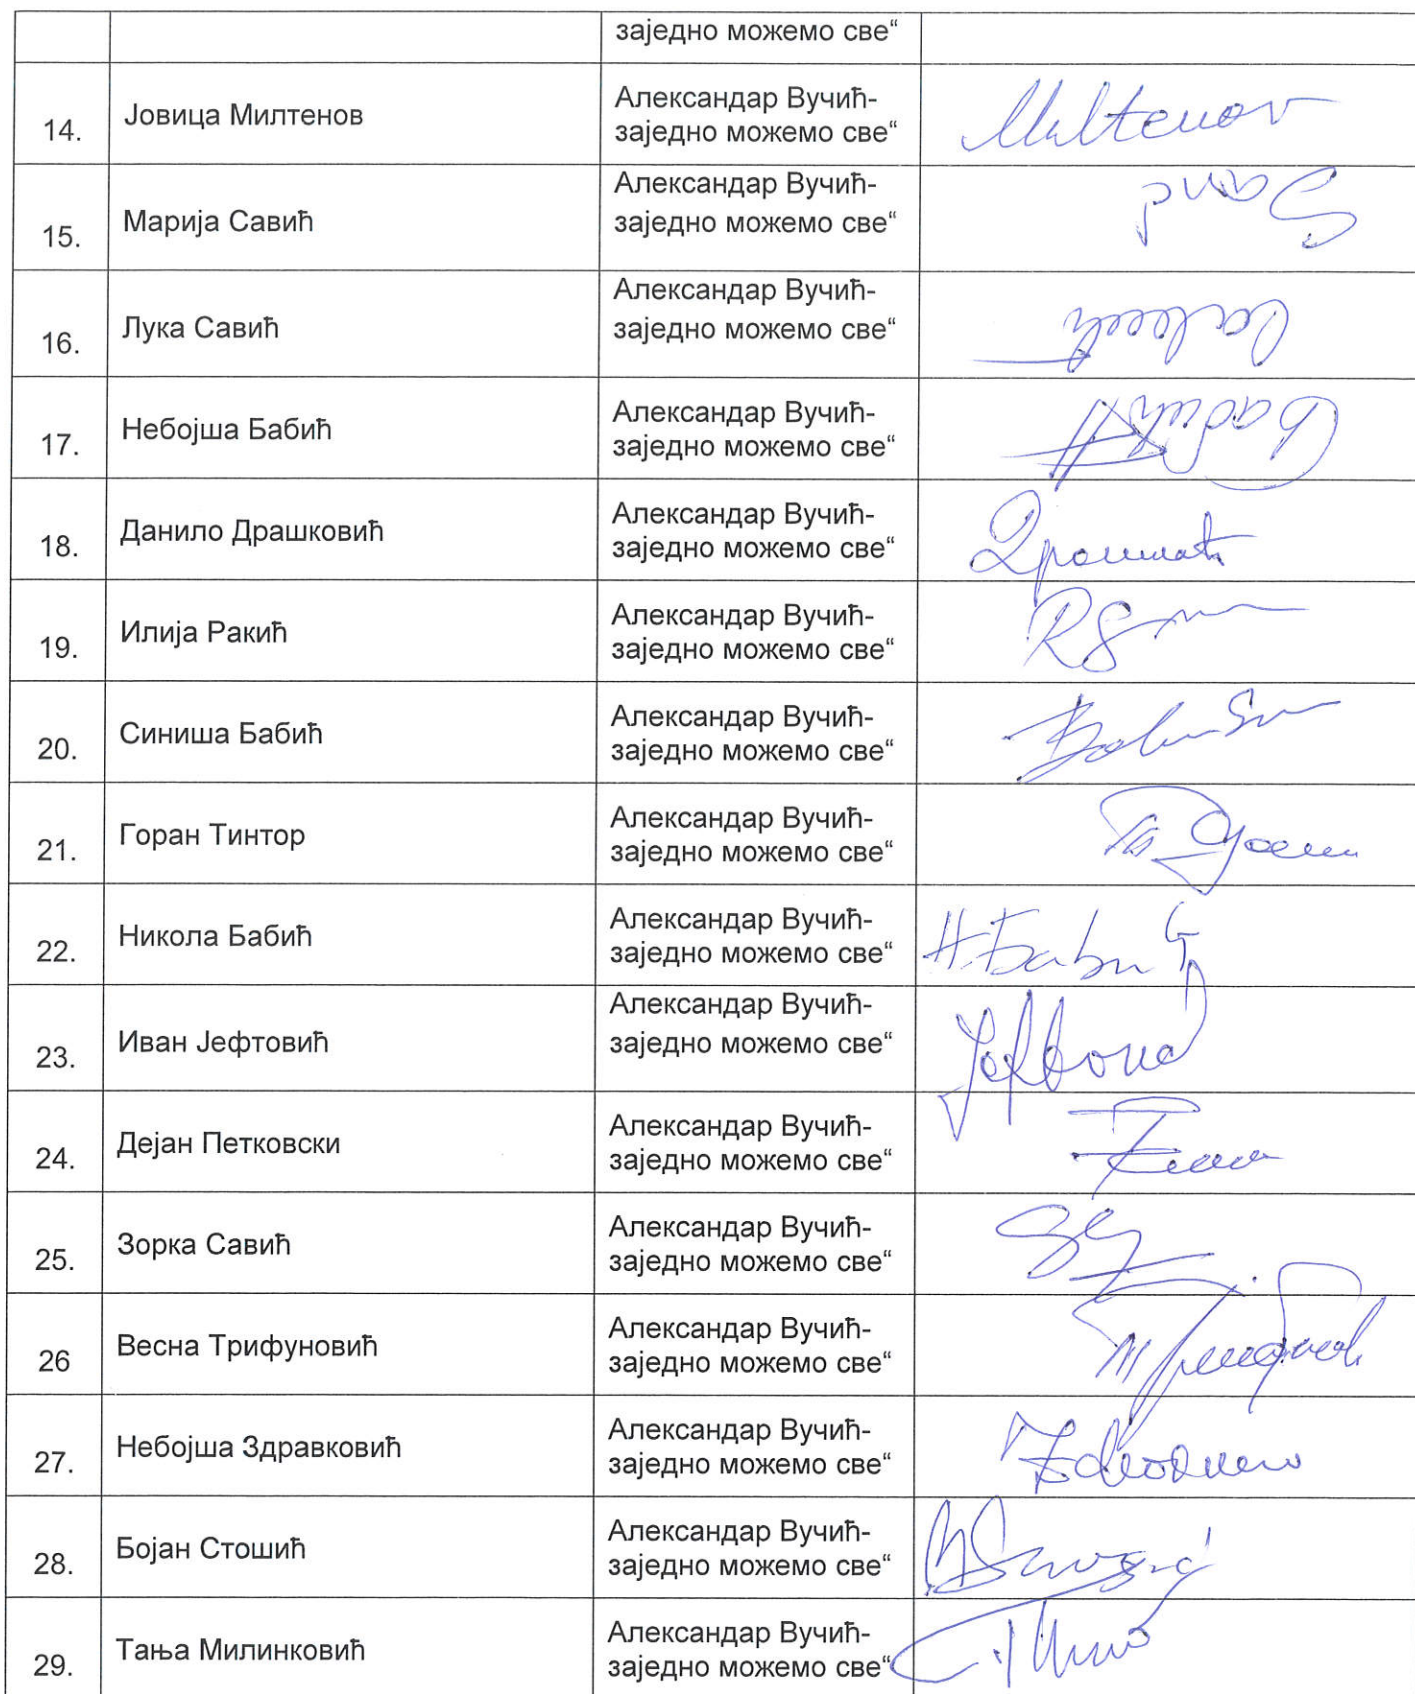 заједно можемо све“
14. Јовица Милтенов
Александар Вучић-
заједно можемо све“
Miltenov
15. Марија Савић
Александар Вучић-
заједно можемо све“
16. Лука Савић
Александар Вучић-
заједно можемо све“
17. Небојша Бабић
Александар Вучић-
заједно можемо све“
18. Данило Драшковић
Александар Вучић-
заједно можемо све“
19. Илија Ракић
Александар Вучић-
заједно можемо све“
20. Синиша Бабић
Александар Вучић-
заједно можемо све“
21. Горан Тинтор
Александар Вучић-
заједно можемо све“
22. Никола Бабић
Александар Вучић-
заједно можемо све“
Н. Бабић
23. Иван Јефтовић
Александар Вучић-
заједно можемо све“
24. Дејан Петковски
Александар Вучић-
заједно можемо све“
25. Зорка Савић
Александар Вучић-
заједно можемо све“
26 Весна Трифуновић
Александар Вучић-
заједно можемо све“
27. Небојша Здравковић
Александар Вучић-
заједно можемо све“
28. Бојан Стошић
Александар Вучић-
заједно можемо све“
29. Тања Милинковић
Александар Вучић-
заједно можемо све“